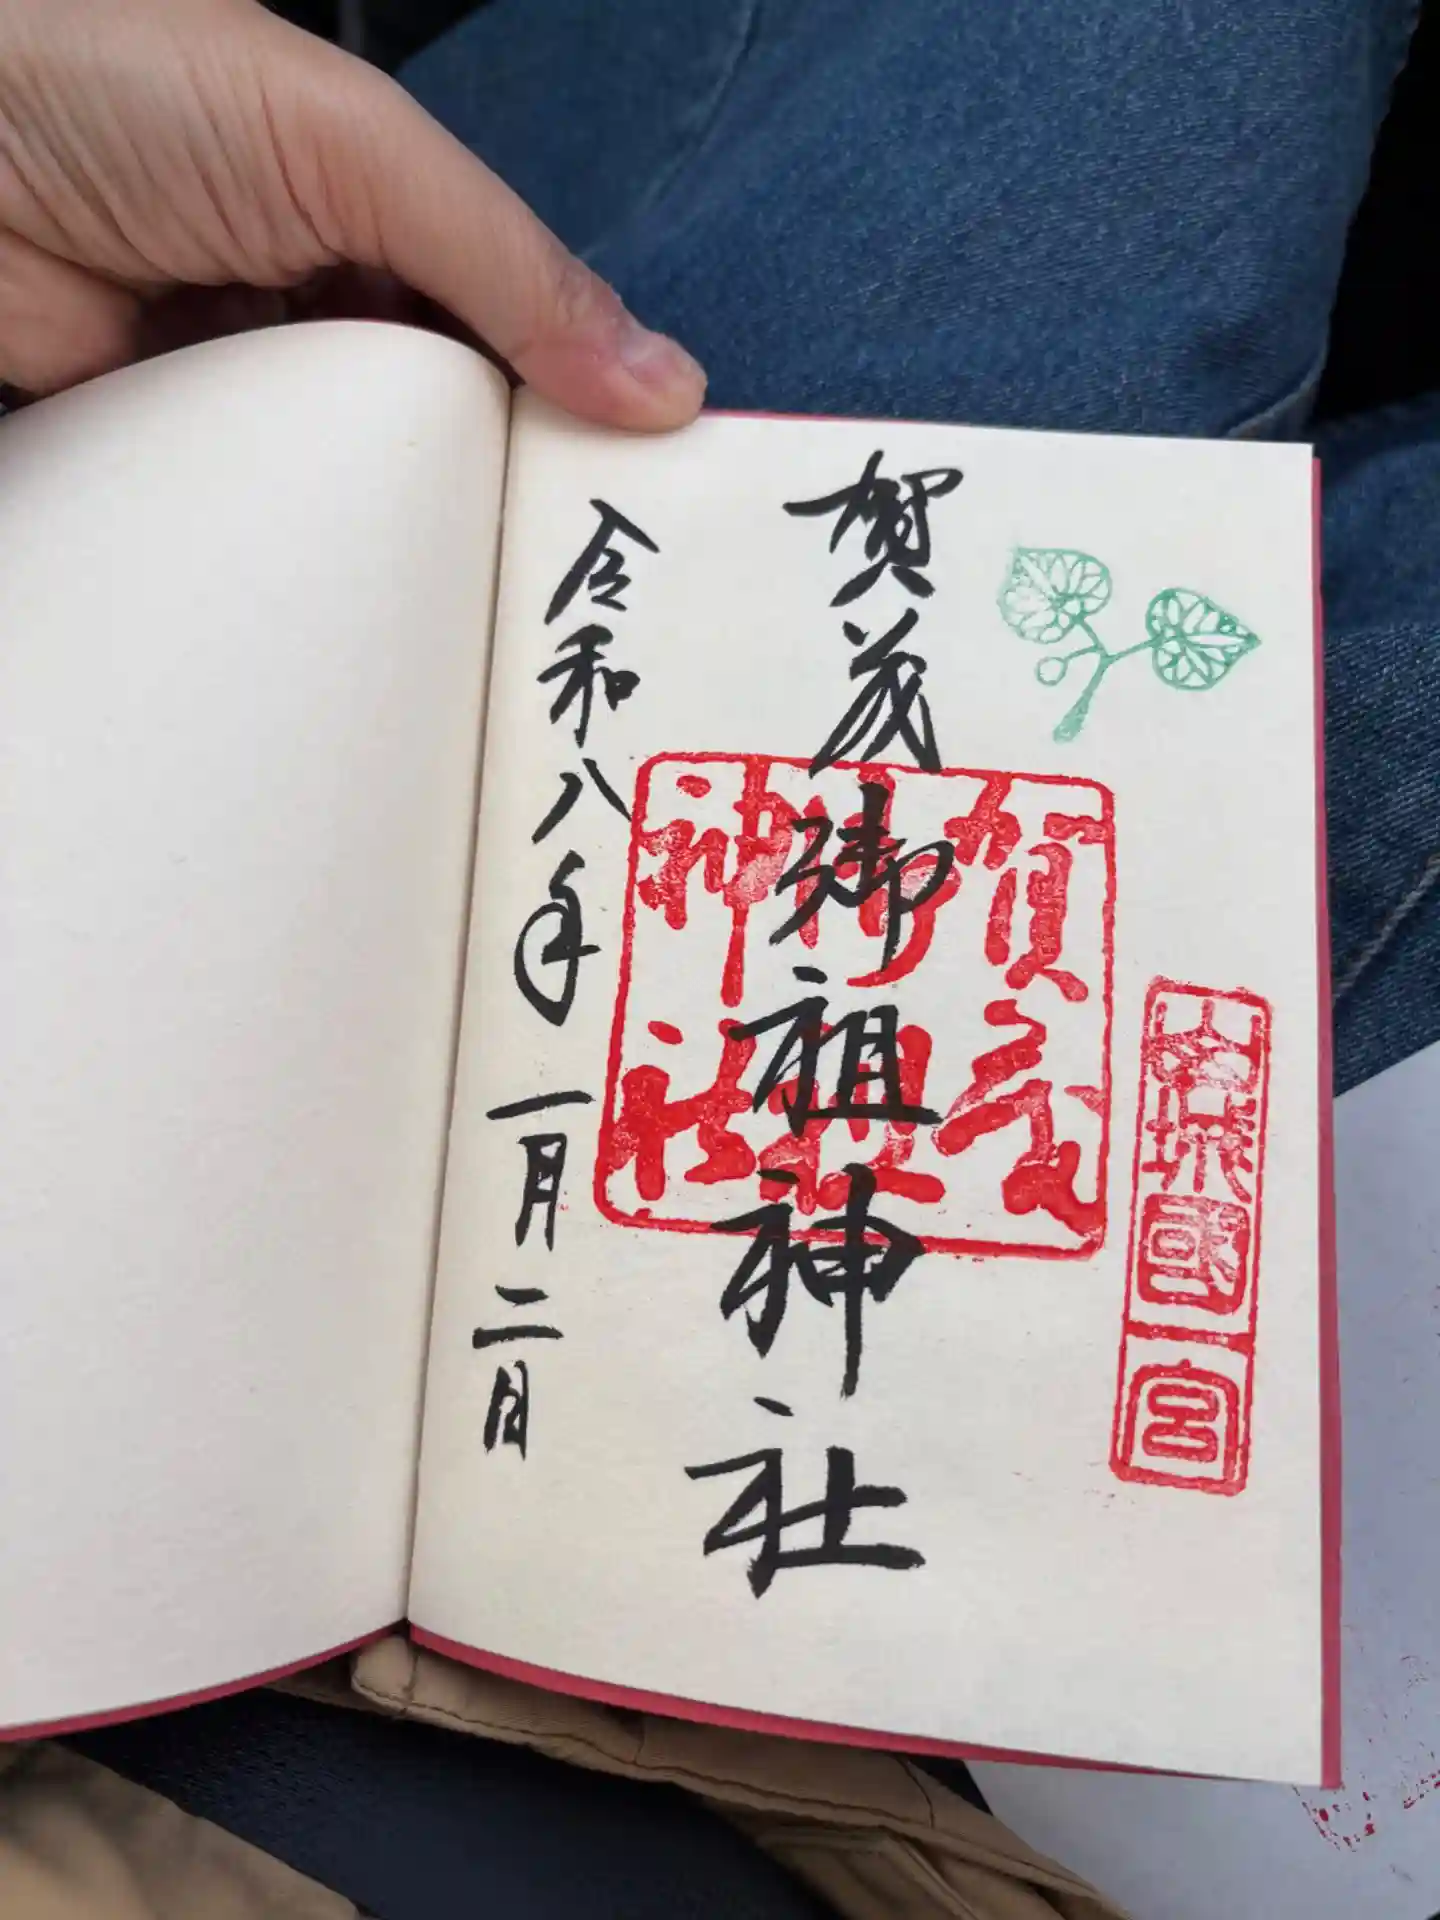 山城國一宮
賀茂御祖神社
賀茂御祖神社
令和八年一月二日